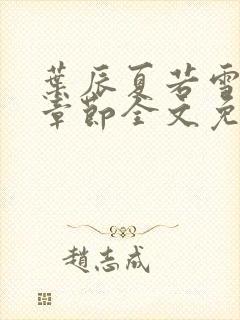 葉辰夏若雪
章節全文免
趙志成